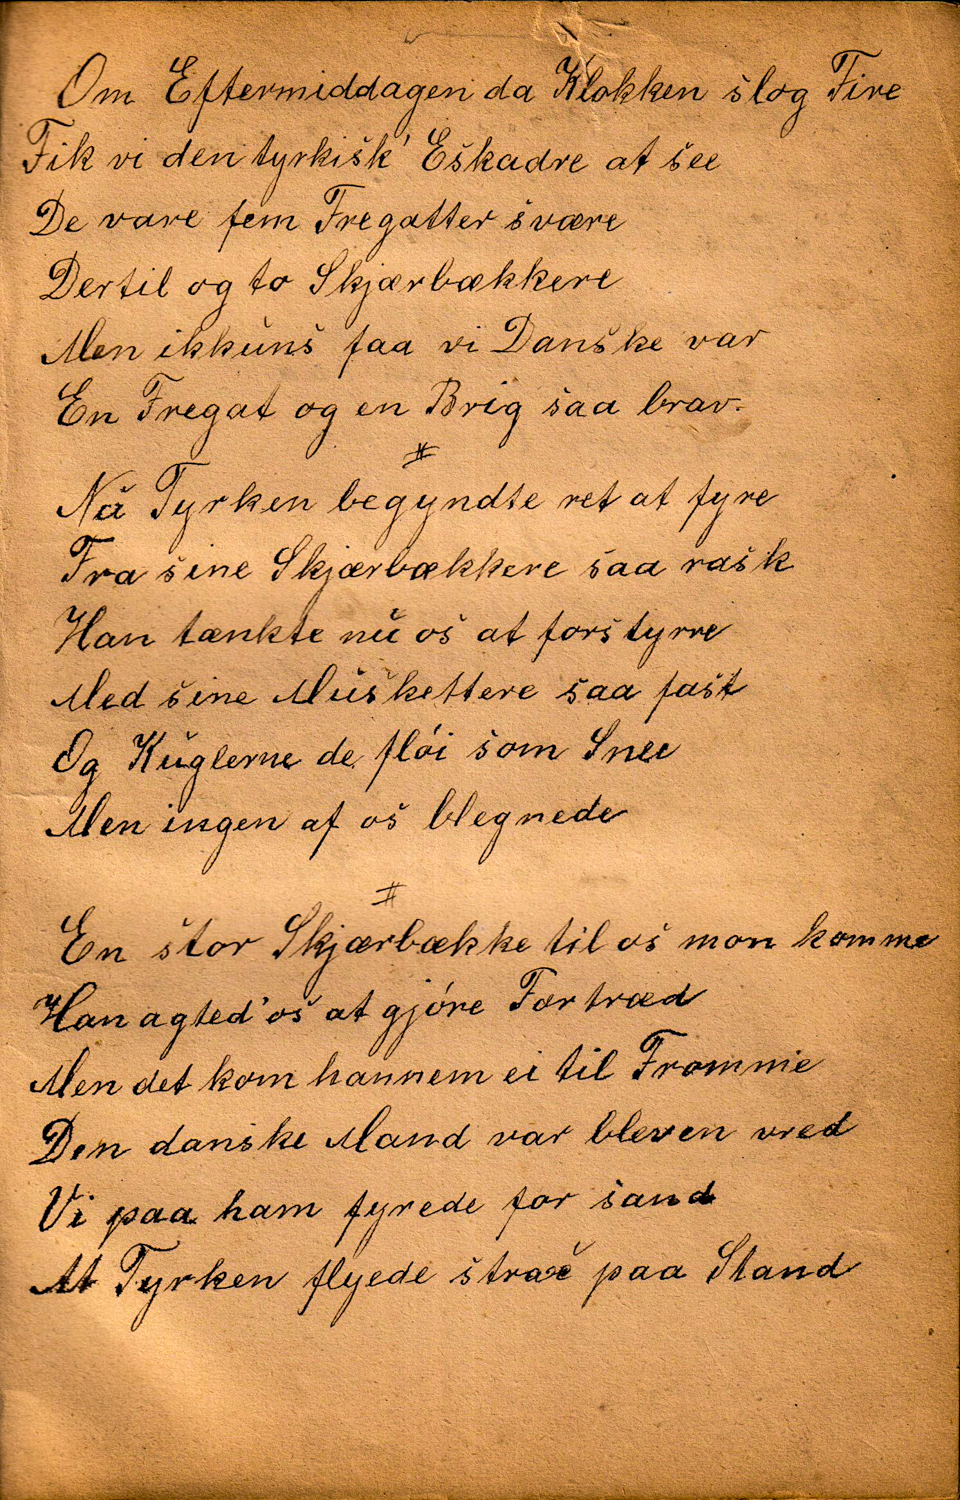 Om Eftermiddagen da Klokken slog Fire
Fik vi den tyrkisk' Eskadre at see
De vare fem Fregatter svære
Dertil og to Skjærbækkere
Men ikkuns faa vi Danske var
En Fregat og en Brig saa brav.
#
Nu Tyrken begyndte ret at fyre
Fra sine Skjærbækkere saa rask
Han tænkte nu os at forstyrre
Med sine Muskettere saa fast
Og Kuglerne de flói som Snee
Men ingen af os blegnede
#
En stor Skjærbække til os mon komme
Han agted' os at gjóre Fortræd
Men det kom hannem ei til Fromme
Den danske Mand var bleven vred
Vi paa ham fyrede for sand
At Tyrken flyede strax paa Stand